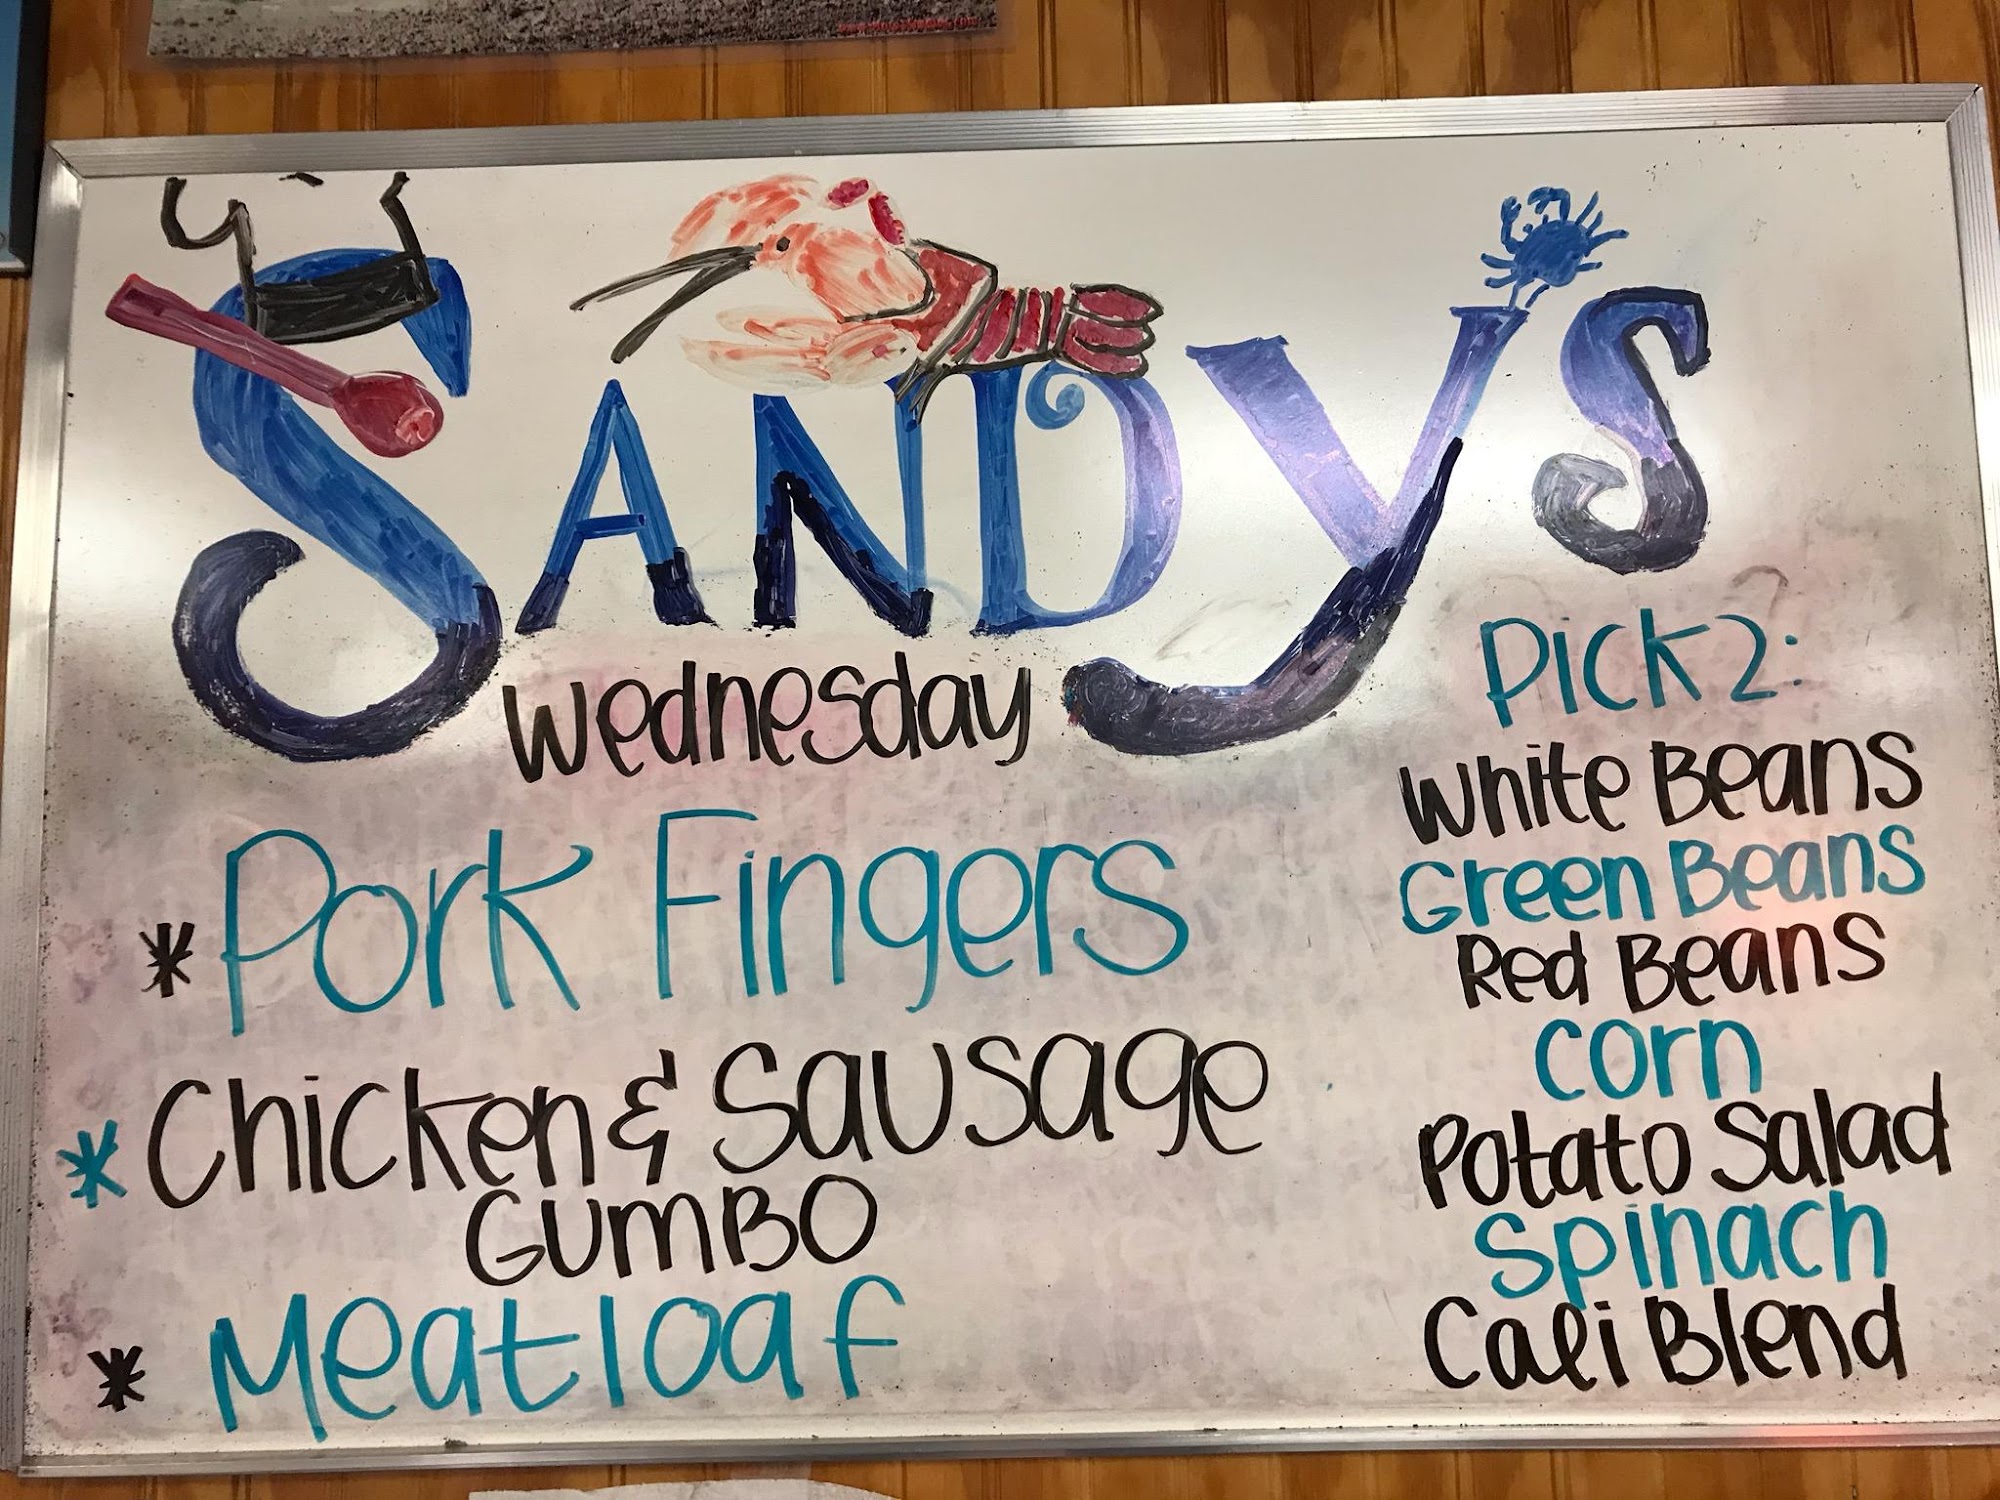 SANDYS
Wednesday
* Pork Fingers
* Chicken & Sausage
GUMBO
* Meatloaf
Pick 2:
White Beans
Green Beans
Red Beans
Corn
Potato Salad
Spinach
Cali Blend